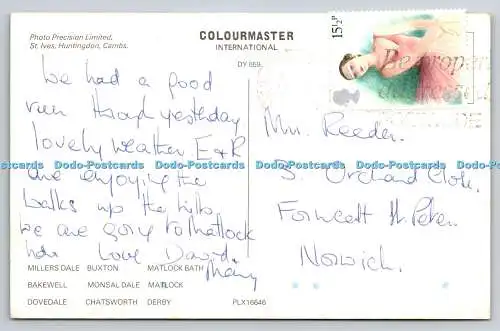 Photo Precision Limited,
St. Ives, Huntingdon, Cambs.
COLOURMASTER
INTERNATIONAL
DY 659
15½P
Be properly
addressed
We had a good
run through yesterday
lovely weather E & R
are enjoying the
walks up the hills
we are going to Matlock
Love David
Mary
Mrs. Reeder.
3. Orchard Close.
Forncett St. Peter.
Norwich.
Dodo-Postcards Dodo-Postcards Dodo-Postcards Dodo-Postcards Dodo-Postcards Dodo-Postcards
MILLERS DALE BUXTON MATLOCK BATH
BAKEWELL MONSAL DALE MATLOCK
DOVEDALE CHATSWORTH DERBY
PLX16646